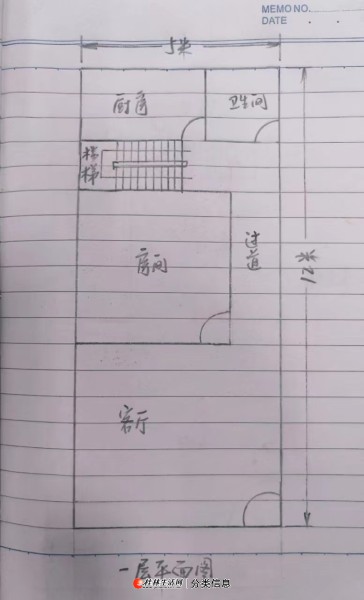 MEMO NO.
DATE . .
5米
厨房
卫生间
楼梯
房间
过道
12米
客厅
一层平面图
桂林生活网 分类信息